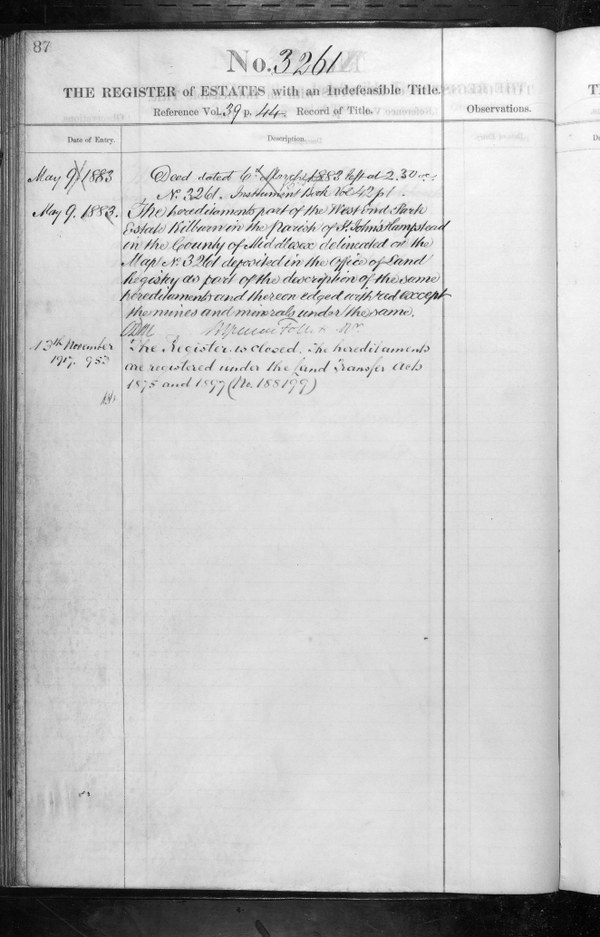 87
No. 3261
THE REGISTER of ESTATES with an Indefeasible Title.
Reference Vol. 39 p. 44 Record of Title.
Observations.
Date of Entry.
Description.
May 9 1883
Deed dated 6th March 1883 left at 2.30
No. 3261. Instrument Book Vol 42 p 1.
May 9. 1883.
The hereditaments part of the West End Park
Estate Kilburn in the parish of St. Johns Hampstead
in the County of Middlesex delineated on the
Map No. 3261 deposited in the Office of Land
Registry as part of the description of the same
hereditaments and thereon edged with red except
the mines and minerals under the same.
13th November
1917.
The Register is closed. The hereditaments
are registered under the Land Transfer Acts
1875 and 1897 (No. 188199)